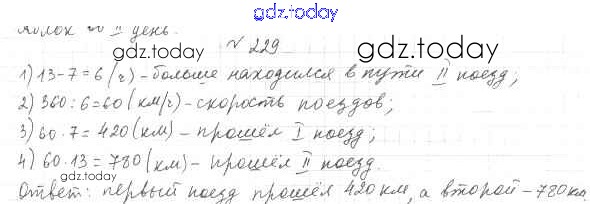 gdz.today
яблок во II день.
№ 229
gdz.today
1) 13-7=6 (г) - больше находился в пути II поезд;
2) 360:6=60 (км/г) - скорость поездов;
3) 60·7=420 (км) - прошёл I поезд;
4) 60·13=780 (км) - прошёл II поезд.
gdz.today
gdz.today
Ответ: первый поезд прошёл 420 км, а второй - 780 км.